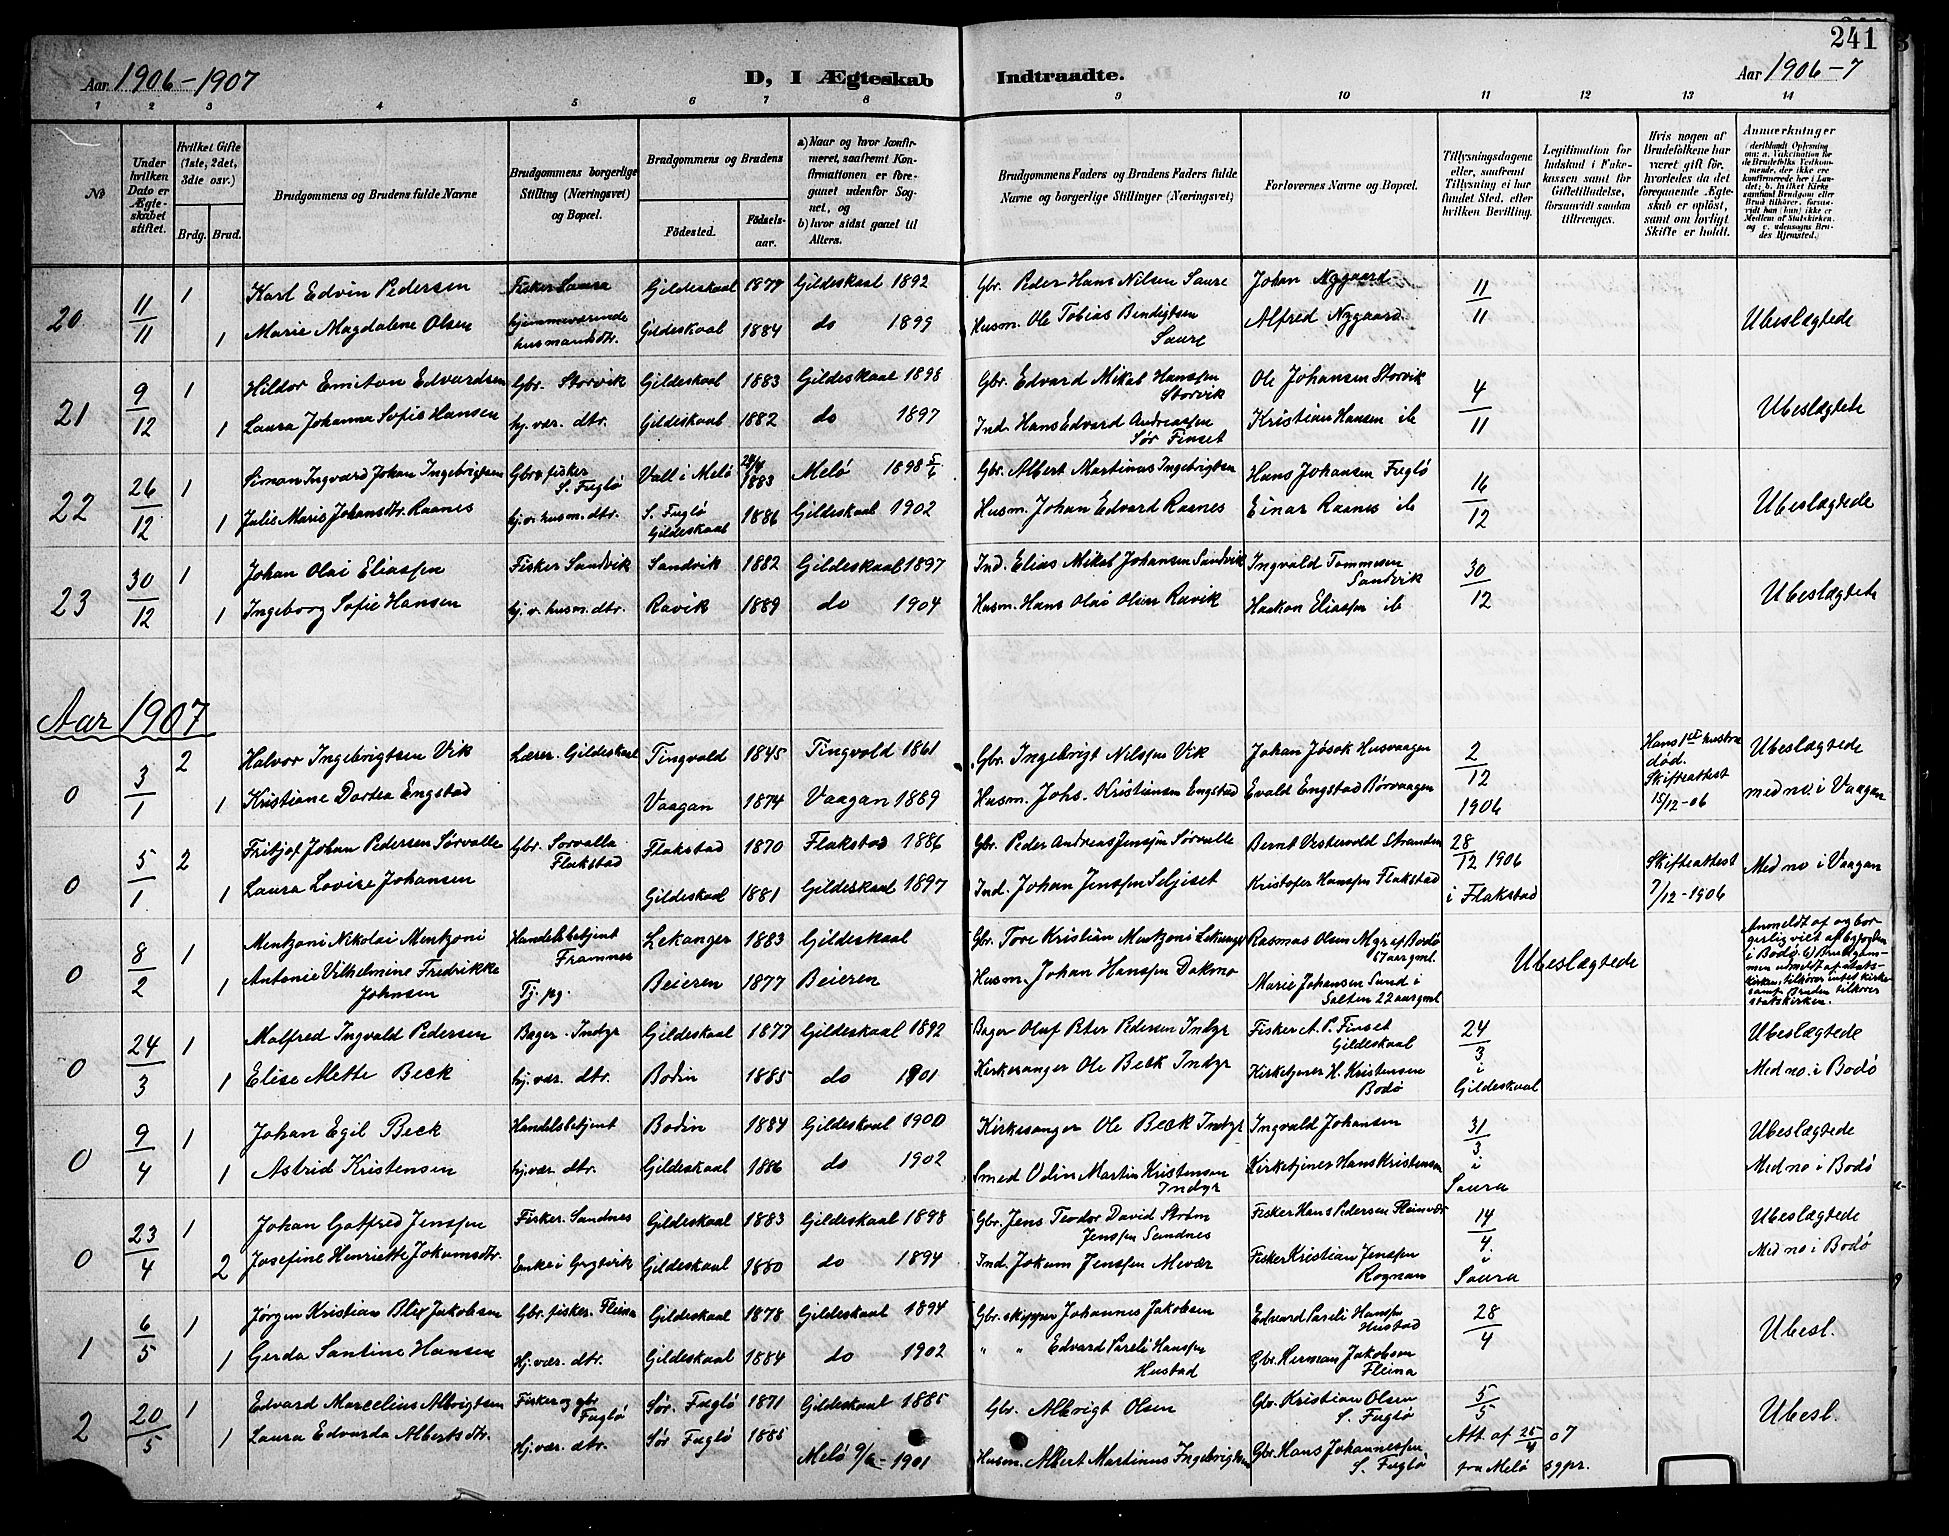 241
Aar 1906-1907
D, I Ægteskab Indtraadte.
Aar 1906-7
1 2 3 4 5 6 7 8 9 10 11 12 13 14
No
Under hvilken Dato er Ægteskabet stiftet.
Hvilket Gifte (1ste, 2det, 3die osv.)
Brdg. Brud.
Brudgommens og Brudens fulde Navne
Brudgommens borgerlige Stilling (Næringsvei) og Bopæl.
Brudgommens og Brudens
Fødested. Fødselsaar.
a) Naar og hvor konfirmeret, saafremt Konfirmationen er foregaaet udenfor Sognet, og
b) hvor sidst gaaet til Alters.
Brudgommens Faders og Brudens Faders fulde Navne og borgerlige Stillinger (Næringsvei)
Forlovernes Navne og Bopæl.
Tillysningsdagene eller, saafremt Tillysning ei har fundet Sted, efter hvilken Bevilling.
Legitimation for Indskud i Enkekassen samt for Giftetilladelse, forsaavidt saadan tiltrænges.
Hvis nogen af Brudefolkene har været gift før, hvorledes da det foregaaende Ægteskab er opløst, samt om lovligt Skifte er holdt.
Anmærkninger
20 11/11 1 Karl Edvin Pedersen Fisker Saura Gildeskaal 1874 Gildeskaal 1892 Gbr. Peder Hans Nilsen Saure Johan Nygaard 11/11
1 Marie Magdalene Olsen hjemmeværende husmandsdtr. Gildeskaal 1884 do 1899 Husm. Ole Tobias Bendigtsen Saure Alfred Nygaard. Ubeslægtede
21 9/12 1 Hildor Emiton Edvardsen Gbr. Storvik Gildeskaal 1883 Gildeskaal 1898 Gbr. Edvard Mikal Hanssen Storvik Ole Johansen Storvik 4/11
1 Laura Johanna Sofie Hansen hj. vær. dtr. Gildeskaal 1882 do 1897 Ind. Hans Edvard Andreassen Sør Finset Kristian Hansen ib Ubeslægtede
22 26/12 1 Simon Ingvard Johan Ingebrigtsen Gbr & fisker S. Fuglø Vall i Melø 24/4 1883 Melø 1898 5/6 Gbr. Albert Martinus Ingebrigtsen Hans Johansen Fuglø 16/12
1 Julie Marie Johansdtr. Raanes hj. v. husm. dtr. S. Fuglø Gildeskaal 1886 Gildeskaal 1902 Husm. Johan Edvard Raanes Einar Raanes ib Ubeslægtede
23 30/12 1 Johan Olai Eliassen Fisker Sandvik Sandvik 1882 Gildeskaal 1897 Ind. Elias Mikal Johansen Sandvik Ingvald Tommesen Sandvik 30/12
1 Ingeborg Sofie Hansen hj. v. husm. dtr. Ravik 1889 do 1904 Husm. Hans Olai Olsen Ravik Haakon Eliassen ib Ubeslægtede
Aar 1907
0 3/1 2 Halvor Ingebrigtsen Vik Lærer. Gildeskaal Tingvold 1845 Tingvold 1861 Gbr. Ingebrigt Nilssen Vik Johan Jøsok Husvaagen 2/12 1906 Hans 1ste hustru død. Skifteattest 15/12-06 Ubeslægtede
1 Kristiane Dortea Engstad Vaagan 1874 Vaagan 1889 Husm. Johs. Kristiansen Engstad Evald Engstad Rørvaagen med no. i Vaagan
0 5/1 2 Fritjof Johan Pedersen Sørvalle Gbr. Sorvalla Flakstad Flakstad 1870 Flakstad 1886 Gbr. Peder Andreas Jenssen Sørvalle Bernt Vestervold Stranden 28/12 1906 i Flakstad Skifteattest 7/12-1906 Med no i Vaagan
1 Laura Lovise Johansen Gildeskaal 1881 Gildeskaal 1897 Ind. Johan Jenssen Seljeset Kristofer Hanssen Flakstad
0 8/2 1 Mentzoni Nikolai Mentzoni Handelsbetjent Framnes Lekanger 1883 Gildeskaal Gbr. Tore Kristian Mentzoni Lekanger Rasmus Olsen Myr af Bodø 67 aar gml. Ubeslægtede
1 Antonie Vilhelmine Fredrikke Johnsen Tj. pg. Beieren 1877 Beieren Husm. Johan Hanssen Dokmo Marie Johansen Sund i Salten 22 aar gml
Anmeldt af og borgerlig viet af byfogden i Bodø. b) Brudgommen udmeldt af statskirken, tilhører intet kirkesamf. Bruden tilhører statskirken.
0 24/3 1 Malfred Ingvald Pedersen Bager. Indyr Gildeskaal 1877 Gildeskaal 1892 Bager Oluf Peter Pedersen Indyr Fisker A. P. Finset Gildeskaal 24/3 i Gildeskaal Ubeslægtede
1 Elise Mette Beck hj. vær. dtr. Bodin 1885 do 1901 Kirkesanger Ole Beck Indyr Kirketjener H. Kristensen Bodø Med no. i Bodø
0 9/4 1 Johan Egil Beck Handelsbetjent Bodin 1884 Gildeskaal 1900 Kirkesanger Ole Beck Indyr Ingvald Johansen 31/3 i Saura Ubeslægtede
1 Astrid Kristensen hj. vær. dtr. Gildeskaal 1886 do 1902 Smed Odin Martin Kristensen Indyr Kirketjener Hans Kristensen Med no i Bodø
0 23/4 1 Johan Gotfred Jenssen Fisker. Sandnes Gildeskaal 1883 Gildeskaal 1898 Gbr. Jens Teodor David Strøm Jenssen Sandnes Fisker Hans Pedersen Fleinvær 14/4 i Saura Ubeslægtede
2 Josefine Henriette Jokumsdtr. Enke i Grytvik Gildeskaal 1880 do 1894 Ind. Jokum Jenssen Mevær Fisker Kristian Jenssen Rognan Med no i Bodø
1 6/5 1 Jørgen Kristian Blix Jakobsen Gbr. fisker. Fleina Gildeskaal 1878 Gildeskaal 1894 Gbr. skipper Johannes Jakobsen Edvard Pareli Hanssen Hustad 28/4
1 Gerda Santine Hansen Hj. vær. dtr. Gildeskaal 1884 do 1902 " " Edvard Pareli Hanssen Hustad Gbr. Herman Jakobsen Fleina Ubesl.
2 20/5 1 Edvard Marcelius Albrigtsen Fisker og gbr Fuglø Sør. Fuglø 1871 Gildeskaal 1885 Gbr. Albrigt Olsen Gbr. Kristian Olsen S. Fuglø 5/5 Ubesl.
1 Laura Edvarda Albertsdtr. Hj. vær. dtr. Sør Fuglø 1885 Melø 9/6-1901 Husm. Albert Martinus Ingebrigtsen Gbr. Hans Johannessen S. Fuglø Att. af 25/4 07 fra Melø sgpr.